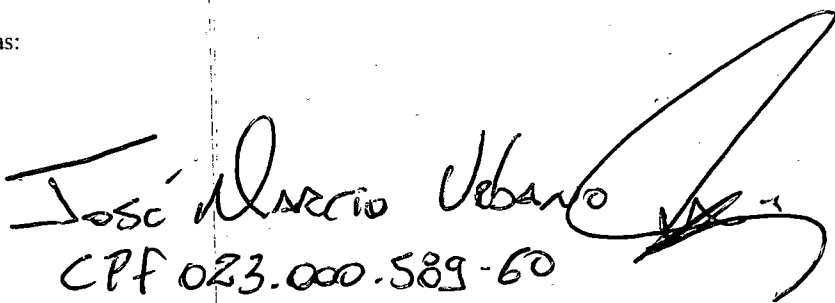 as:
José Marcio Urbano
CPF 023.000.589-60